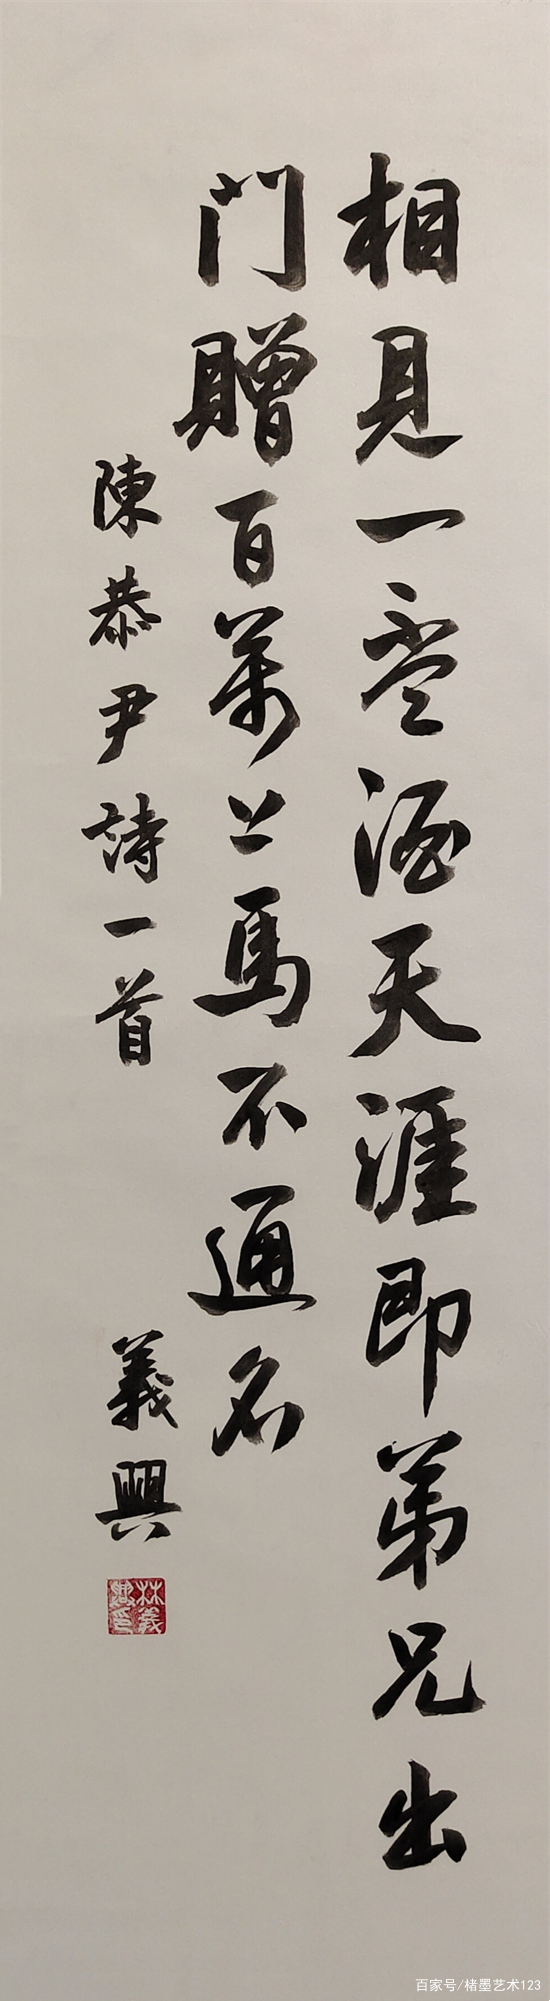 相見一盃酒天涯即弟兄出
门贈百萬上馬不通名
陳恭尹詩一首
義興
林義興印
百家号/楮墨艺术123